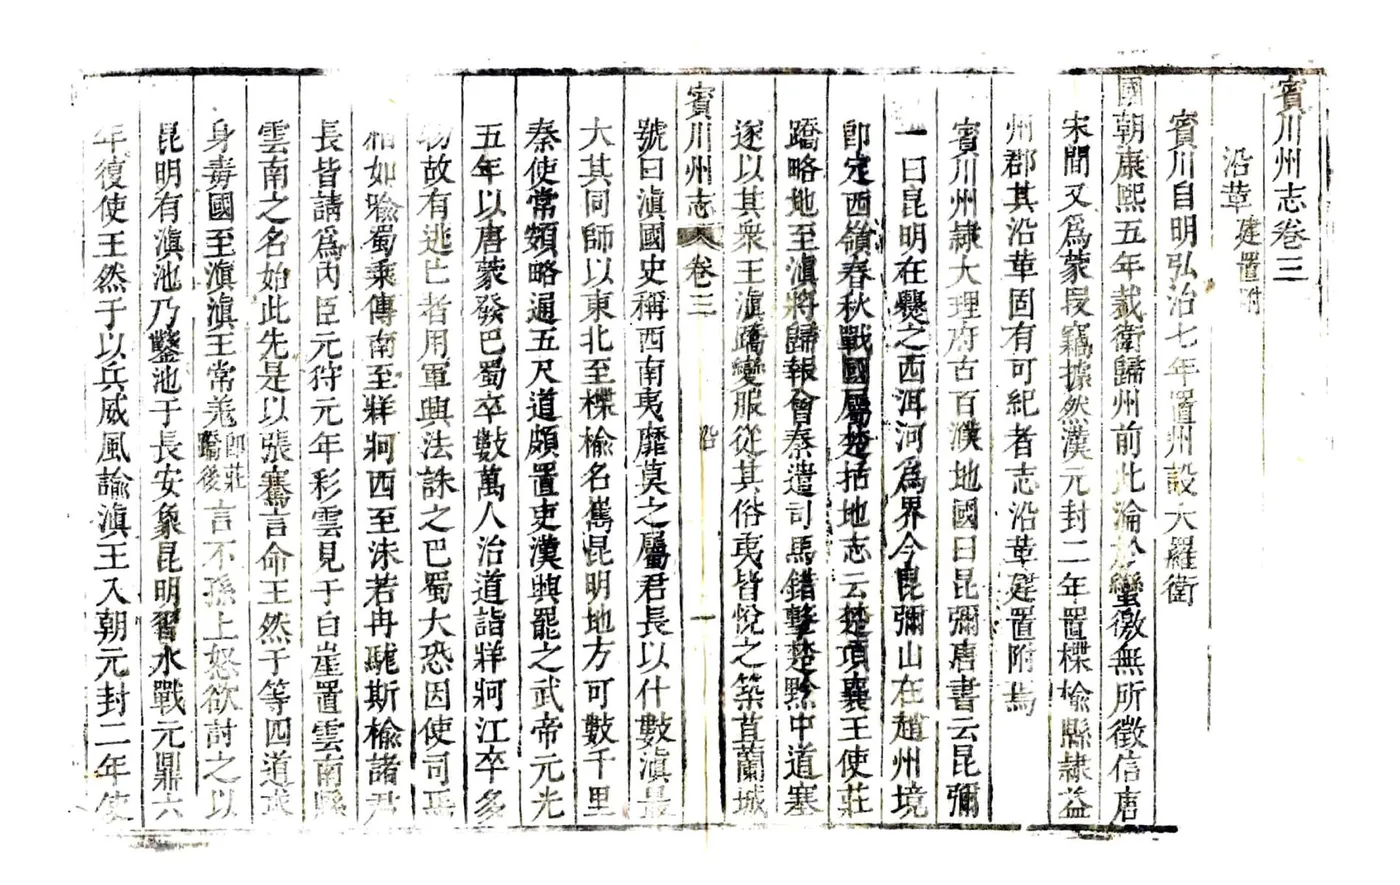 賓川州志卷三
沿革建置附
賓川自明弘治七年置州設大羅衛
國朝康熙五年裁衛歸州前此淪於蠻徼無所徵信唐
宋間又爲蒙段竊據然漢元封二年置楪榆縣隸益
州郡其沿革固有可紀者志沿革建置附焉
賓川州隸大理府古百濮地國曰昆彌唐書云昆彌
一曰昆明在爨之西洱河爲界今毘彌山在趙州境
卽定西嶺春秋戰國屬楚括地志云楚頃襄王使莊
蹻略地至滇將歸報會秦遣司馬錯擊楚黔中道塞
遂以其衆王滇蹻變服從其俗夷皆悅之築苴蘭城
賓川州志 卷三 沿 一
號曰滇國史稱西南夷靡莫之屬君長以什數滇最
大其同師以東北至楪榆名嶲昆明地方可數千里
秦使常頞略通五尺道頗置吏漢興罷之武帝元光
五年以唐蒙發巴蜀卒數萬人治道詣牂牁江卒多
物故有逃亡者用軍興法誅之巴蜀大恐因使司馬
相如喻蜀乘傳南至牂牁西至沬若冉駹斯榆諸君
長皆請爲內臣元狩元年彩雲見于白崖置雲南縣
雲南之名始此先是以張騫言命王然于等四道求
身毒國至滇滇王常羌卽莊蹻後言不孫上怒欲討之以
昆明有滇池乃鑿池于長安象昆明習水戰元鼎六
年復使王然于以兵威風諭滇王入朝元封二年使